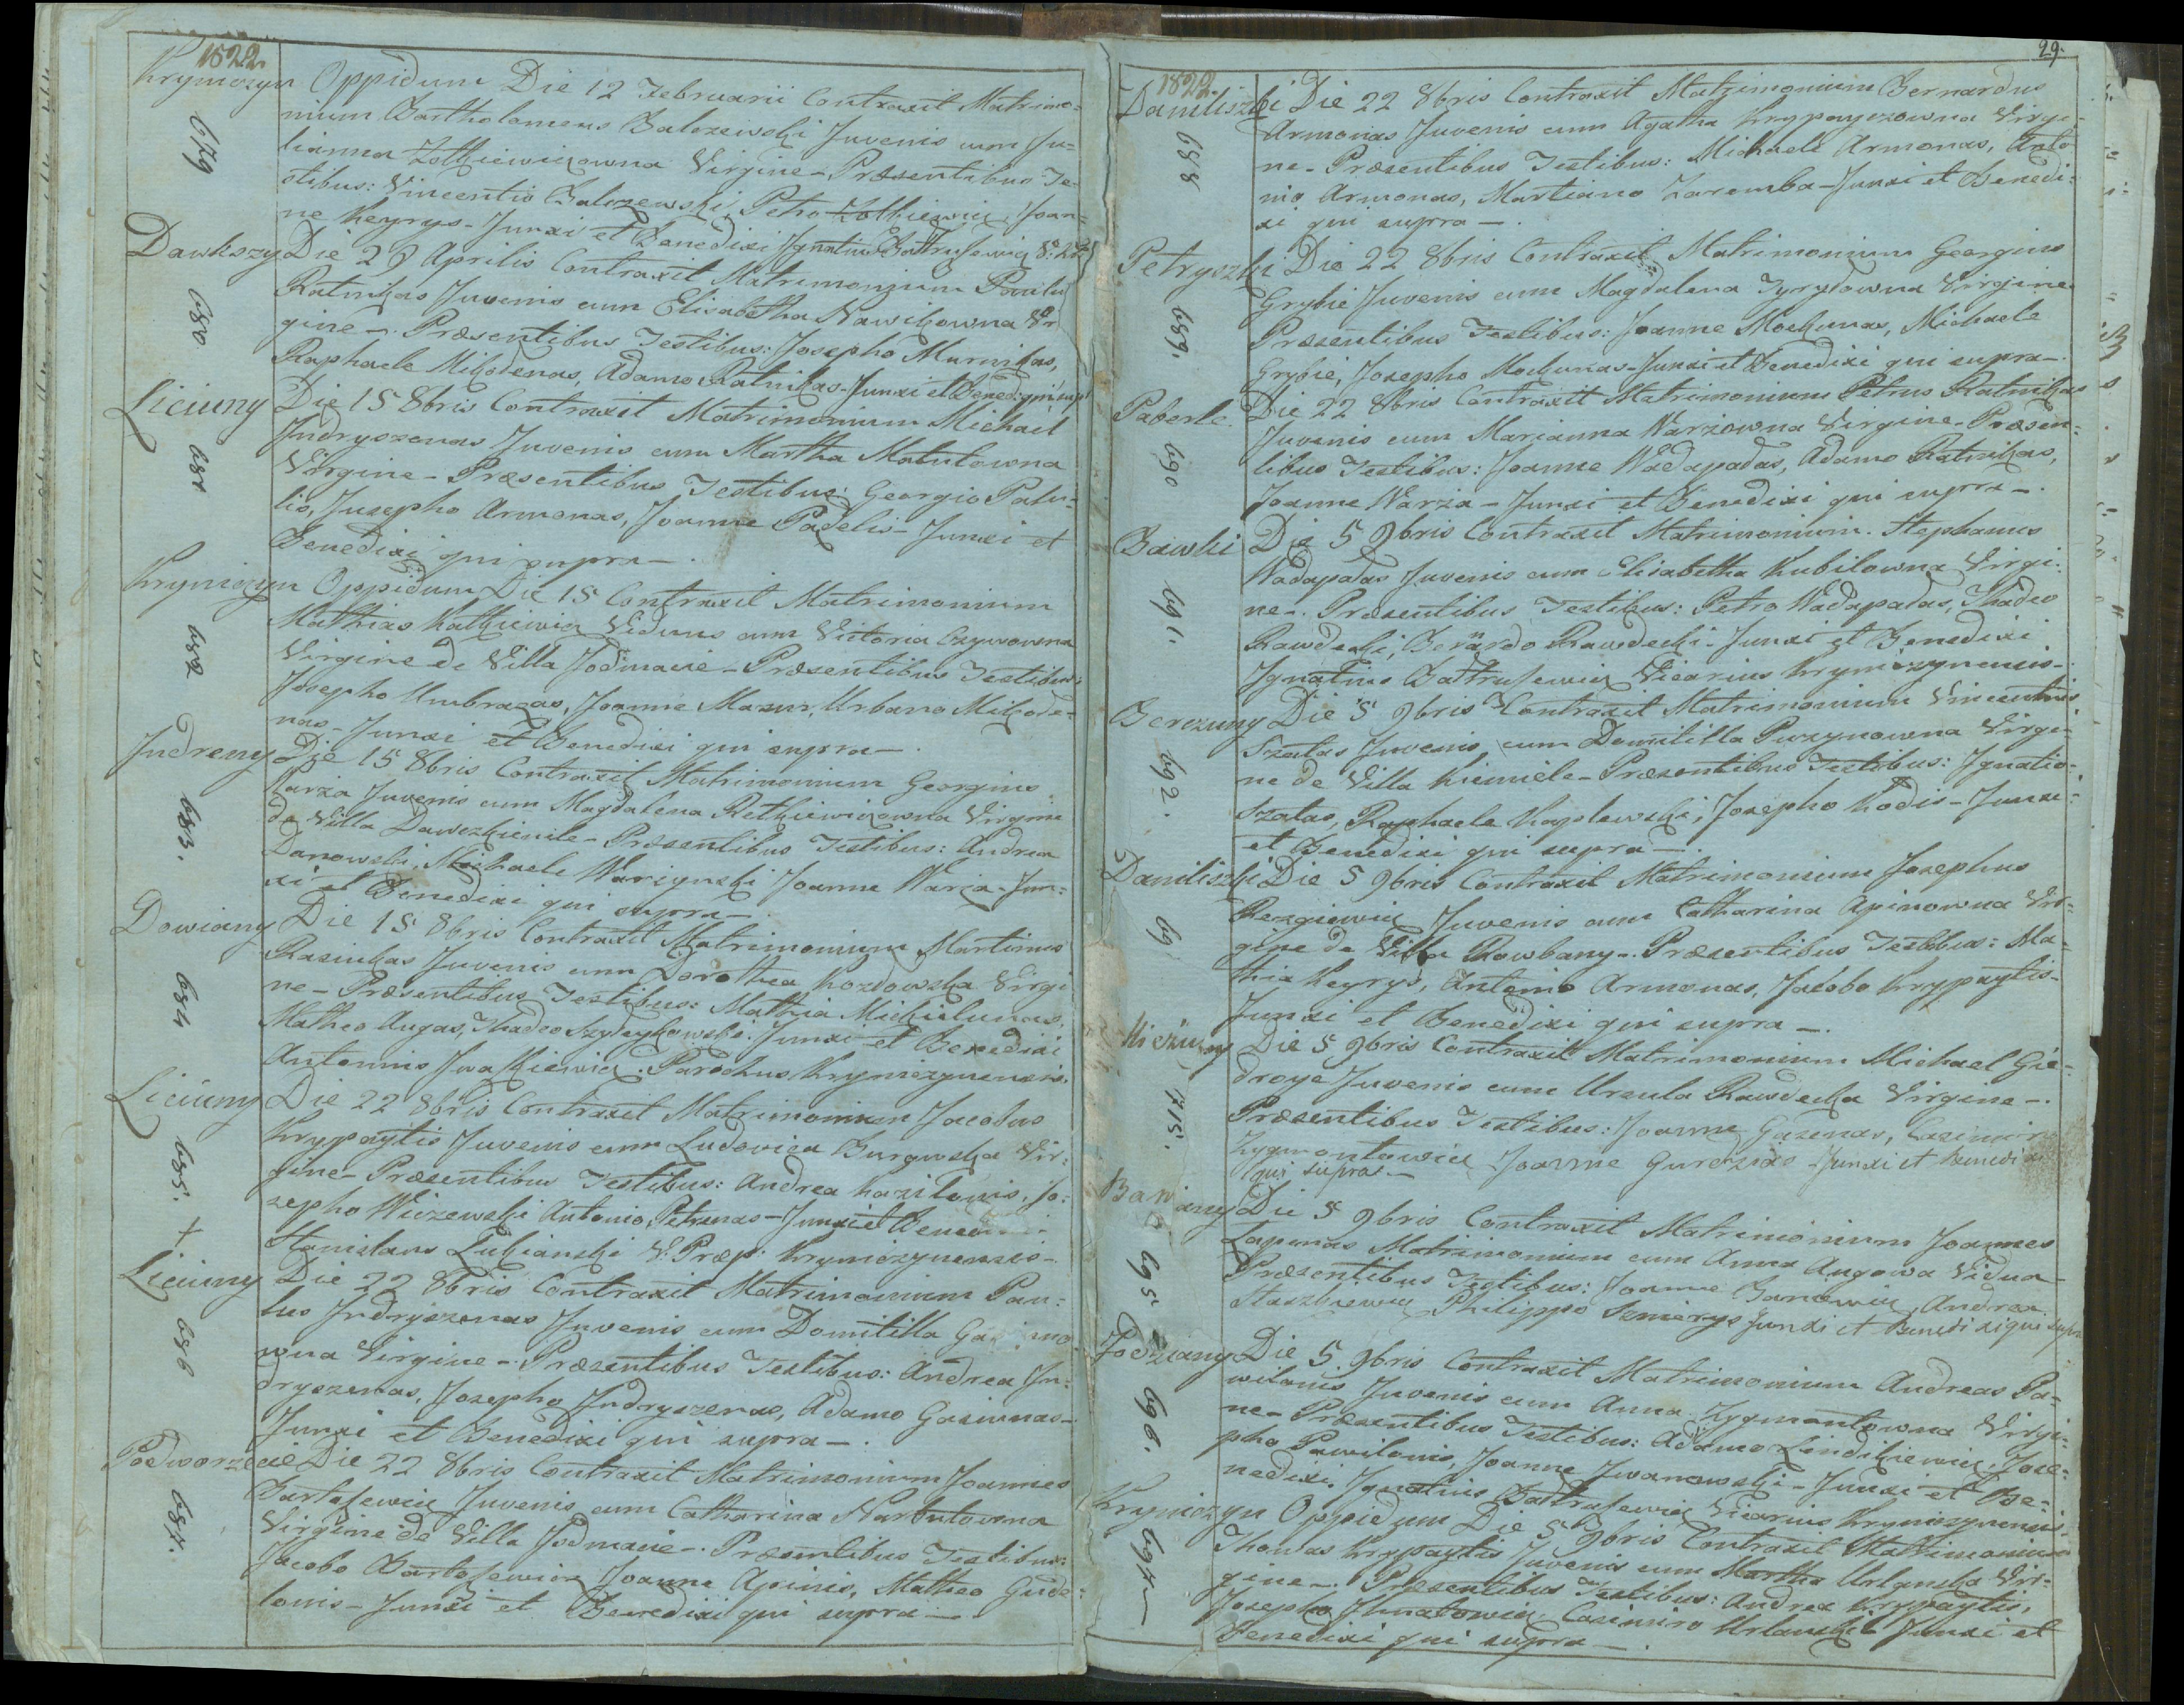 1822.
Krymczyn Oppidum Die 12 Februarii Contraxit Matrimo-
679 nium Bartholomeus Balczewski Juvenis cum Ju-
lianna Zolkiewiczowna Virgine - Præsentibus Te-
stibus: Vincentio Balczewski, Petro Zolkiewicz, Joan-
ne Keyrys - Junxi et Benedixi Ignatius Battrusewicz
Dawkszy Die 29 Aprilis Contraxit Matrimonium Paulus
680 Ratnikas Juvenis cum Elisabetha Nawikowna Vir
gine -. Præsentibus Testibus: Josepho Murnikas,
Raphaele Mikolenas, Adamo Ratnikas - Junxi et Bened: qui sup
Liciuny Die 15 8bris Contraxit Matrimonium Michael
681 Indryszonas Juvenis cum Martha Matulowna
Virgine - Præsentibus Testibus: Georgio Patu-
lis, Jusepho Armonas, Joanne Padelis - Junxi et
Benedixi qui supra -.
Krymczyn Oppidum Die 15 Contraxit Matrimonium
682 Mathias Kalkiewicz Viduus cum Victoria
Virgine de Villa Jodmacie - Præsentibus Testibus:
Josepho Umbrazas, Joanne Mazur, Urbano Mikole-
nas - Junxi et Benedixi qui supra -.
Judreny Die 15 8bris Contraxit Matrimonium Georgius
683. Warza Juvenis cum Magdalena Retkiewiczowna Virgine
de Villa - Præsentibus Testibus: Andrea
Danowski, Michaele Warzynski Joanne Warza - Jun-
xi et Benedixi qui supra -.
Dowiany Die 15 8bris Contraxit Matrimonium Martinus
684 Rasiukas Juvenis cum Dorothea Kozlowska Virgi
ne - Præsentibus Testibus: Mathia Mickielunas,
Matheo Augas, Thadeo - Junxi et Benedixi
Antonius Iwaszkiewicz. Parochus Krymczynensis.
Liciuny Die 22 8bris Contraxit Matrimonium Jacobus
685. + Krypaytis Juvenis cum Ludovica Burgwska Vir-
gine - Præsentibus Testibus: Andrea Kazilonis, Jo-
sepho Wiczewski Antonio Petrunas - Junxi et
Stanislaus Lukianski V. Præp: Krymczynensis -
Liciuny Die 22 8bris Contraxit Matrimonium Pau-
686 lus Indryszonas Juvenis cum Domitilla
wna Virgine -. Præsentibus Testibus: Andrea In-
dryszenas, Josepho Indryszenas, Adamo Gasiunas -
Junxi et Benedixi qui supra -.
Podworzecie Die 22 8bris Contraxit Matrimonium Joannes
687. Bartosewicz Juvenis cum Catharina Narbutowna
Virgine de Villa Jodmacie -. Præsentibus Testibus:
Jacobo Bartosewicz Joanne Apinis, Matheo Gude-
lonis - Junxi et Benedixi qui supra -.
29.
1822.
Daniliszki Die 22 8bris Contraxit Matrimonium Bernardus
688 Armonas Juvenis cum Agatha Krypayczowna Virgi-
ne - Præsentibus Testibus: Michaele Armonas, Anto
nio Armonas, Martiano Zaremba - Junxi et Benedi-
xi qui supra -.
Petryszki Die 22 8bris Contraxit Matrimonium Georgius
689. Grybie Juvenis cum Magdalena Virgine
Præsentibus Testibus: Joanne Mockunas, Michaele
Grybie, Josepho Mockunas - Junxi et Benedixi qui supra -.
Paberle Die 22 8bris Contraxit Matrimonium Petrus Ratnikas
690 Juvenis cum Marianna Warzowna Virgine - Præsen-
tibus Testibus: Joanne Wadapadas, Adamo Ratnikas,
Joanne Warza - Junxi et Benedixi qui supra -.
Bawki Die 5 9bris Contraxit Matrimonium Stephanus
691. Wadapadas Juvenis cum Elisabetha Kubilowna Virgi-
ne -. Præsentibus Testibus: Petro Wadapadas, Thadeo
Rawdecki, Berardo Rawdecki - Junxi et Benedixi
Ignatius Battrusewicz Vicarius Krymczynensis -
Berezuny Die 5 9bris Contraxit Matrimonium Vincentius
692. Szatas Juvenis cum Domitilla Puzynowna Virgi-
ne de Villa Kiemiele - Præsentibus Testibus: Ignatio
Szatas, Raphaele Kaplewski, Josepho Kodis - Junxi
et Benedixi qui supra -.
Daniliszki Die 5 9bris Contraxit Matrimonium Josephus
69 Juvenis cum Catharina Apinowna Vir-
gine de Villa Rowbany -. Præsentibus Testibus: Ma-
thia Keyrys, Antonio Armonas, Jacobo Kryppaytis -
Junxi et Benedixi qui supra -.
Die 5 9bris Contraxit Matrimonium Michael Gie-
715. droyc Juvenis cum Ursula Rawdecka Virgine -.
Præsentibus Testibus: Joanne Gasenas, Casimiro
Zygmontowicz Joanne Gurczas - Junxi et Benedixi
qui supra -
Die 5 9bris Contraxit Matrimonium Joannes
695 Lapenas Matrimonium cum Anna Augowa Vidua -
Præsentibus Testibus: Joanne Andrea
Staszkiewicz Philippo Szmierys Junxi et Benedixi qui supra
Jodziany Die 5 9bris Contraxit Matrimonium Andreas Pa-
696. wilonis Juvenis cum Anna Zygmontowna Virgi-
ne - Præsentibus Testibus: Adamo Jose-
pho Pawilonis, Joanne Iwanowski - Junxi et Be-
nedixi Ignatius Battrusewicz Vicarius Krymczynensis -
Krymczyn Oppidum Die 5 9bris Contraxit Matrimonium
697 Thomas Krypaytis Juvenis cum Martha Urlanska Vir-
gine -. Præsentibus Testibus: Andrea Krypaytis,
Josepho Casimiro Urlanski - Junxi et
Benedixi qui supra -.